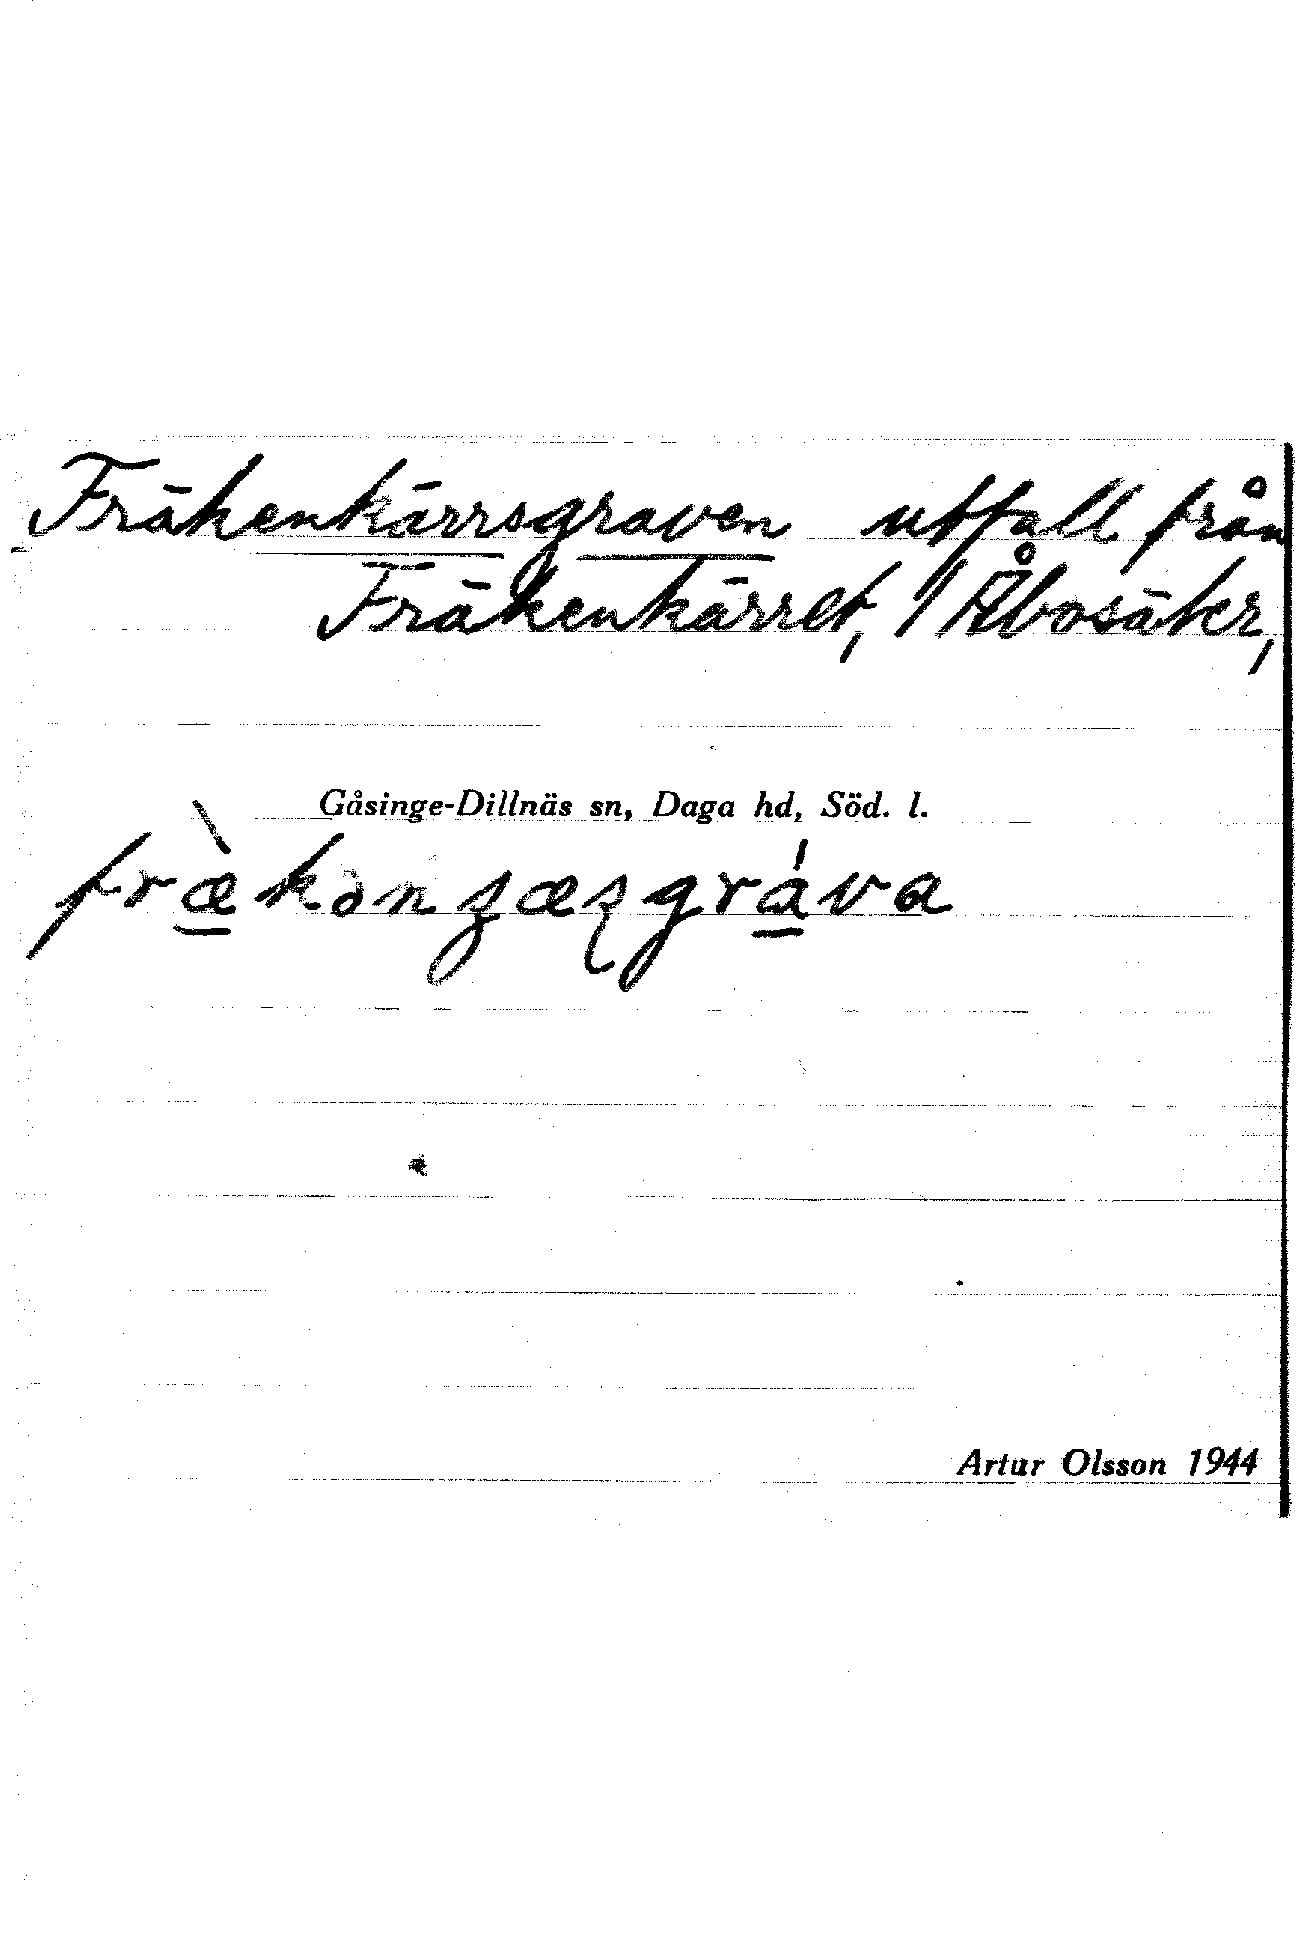 Fräkenkärrsgraven utfall från
Fräkenkärret, / Åbosäter,
Gåsinge-Dillnäs sn, Daga hd, Söd. l.
Artur Olsson 1944